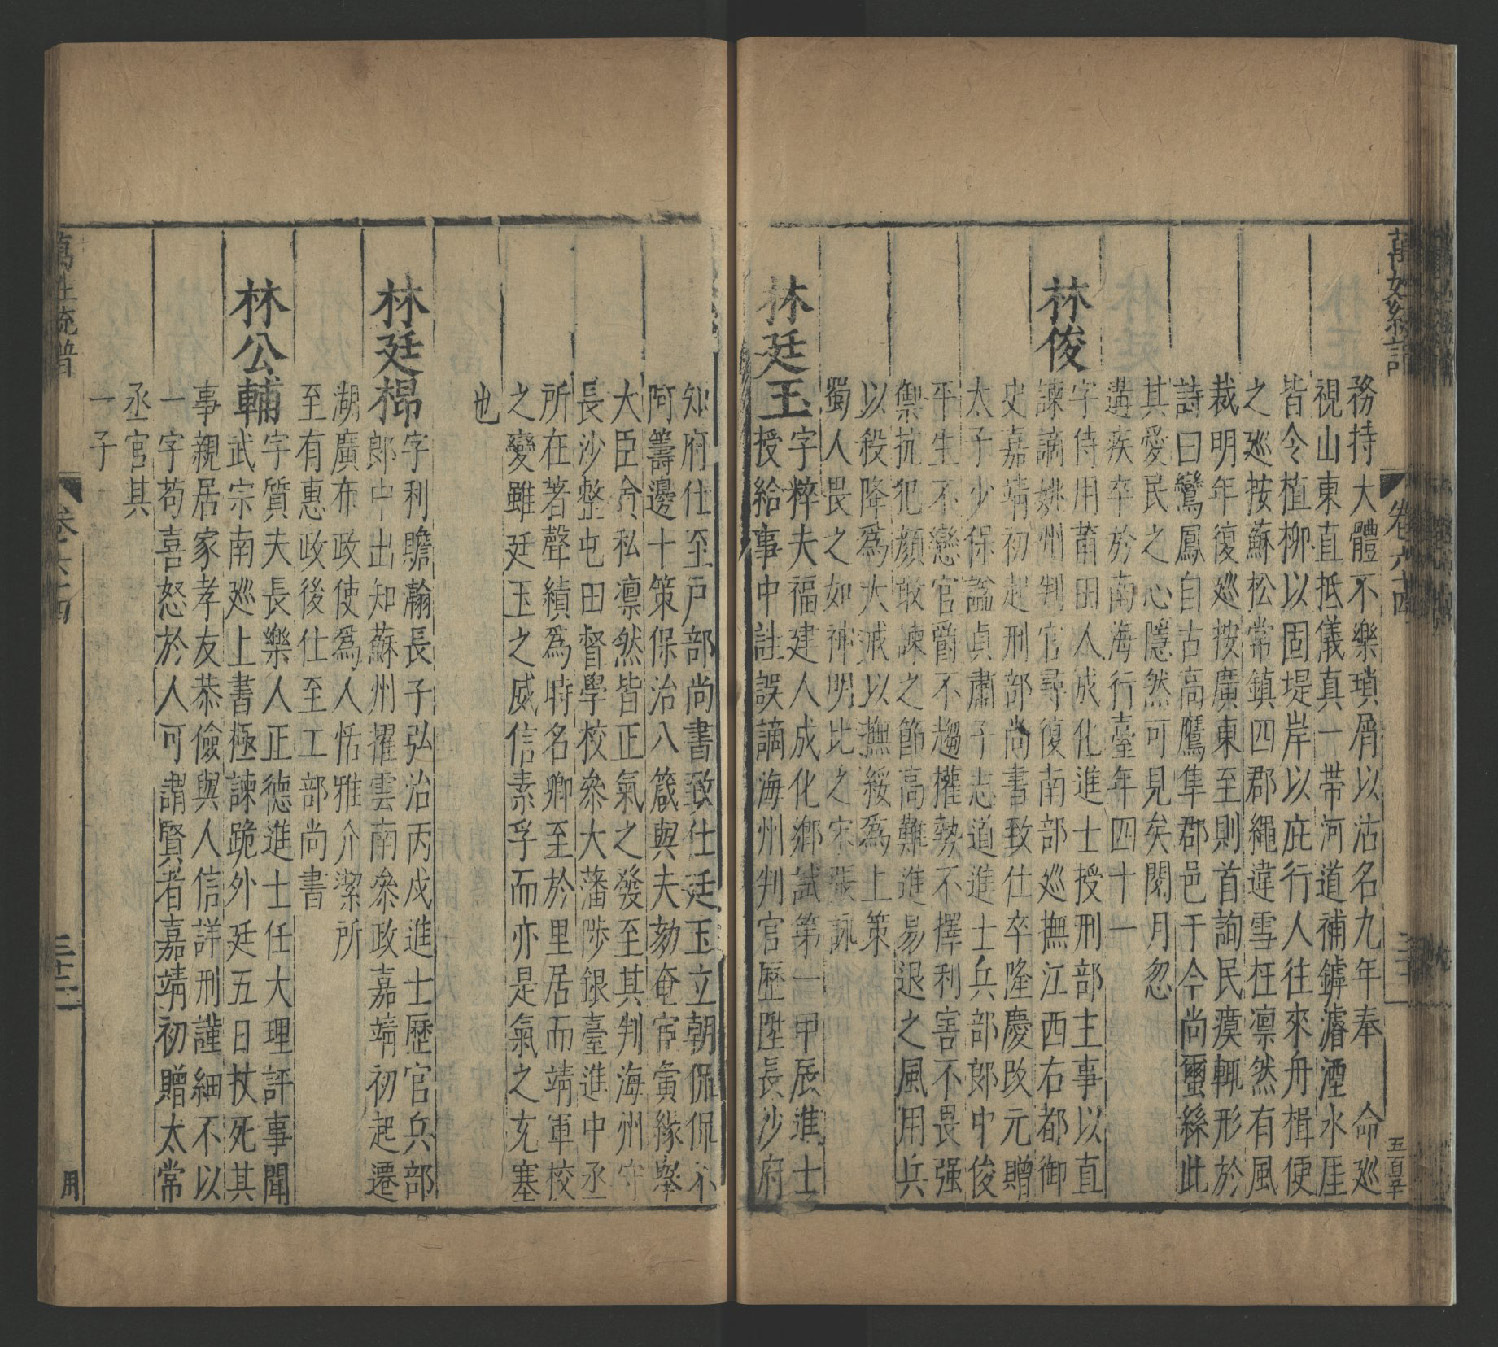 萬姓統譜
卷六十四
五百年
務持大體不樂瑣屑以沽名九年奉 命巡
視山東直抵儀真一带河道補鏬濬湮水厓
皆令植柳以固堤岸以庇行人往來舟揖便
之巡按蘇松常鎮四郡繩違雪枉凛然有風
裁明年復巡按廣東至則首詢民瘼輒形於
詩曰鸞鳳自古高鷹隼郡邑于今尚璽絲此
其愛民之心隱然可見矣閱月忽
遘疾卒於南海行臺年四十一
林俊
字侍用莆田人成化進士授刑部主事以直
諫謫姚州判官尋復南部巡撫江西右都御
史嘉靖初起刑部尚書致仕卒隆慶改元贈
太子少保謚貞肅子志道進士兵部郎中俊
平生不戀官爵不趨權勢不擇利害不畏强
禦抗犯顔敢諫之節高難進易退之風用兵
以殺降為大戒以撫綏為上策
蜀人畏之如神明比之宋張詠
林廷玉
字粹夫福建人成化鄉試第一甲辰進士
授給事中註誤謫海州判官歷陞長沙府
知府仕至戶部尚書致仕廷玉立朝侃侃不
阿籌邊十策保治八箴與夫劾奄宦夤緣舉
大臣貪私凛然皆正氣之發至其判海州守
長沙整屯田督學校叅大藩陟銀臺進中丞
所在著聲績為時名卿至於里居而靖軍校
之變雖廷玉之威信素孚而亦是氣之充塞
也
林廷㭿
字利瞻瀚長子弘治丙戌進士歷官兵部
郎中出知蘇州擢雲南叅政嘉靖初起遷
湖廣布政使為人恬雅介潔所
至有惠政後仕至工部尚書
林公輔
字質夫長樂人正德進士任大理評事聞
武宗南廵上書極諫跪外廷五日杖死其
事親居家孝友恭儉與人信詳刑謹細不以
一字苟喜怒於人可謂賢者嘉靖初贈太常
丞官其
一子
萬姓統譜
卷六十四
三十二
用